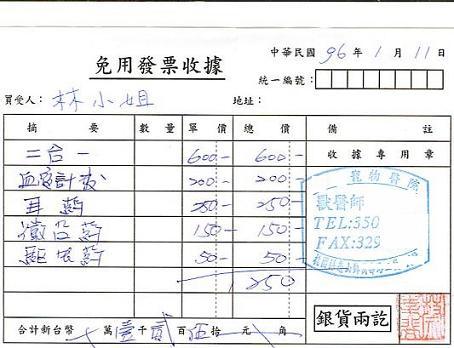 免用發票收據
中華民國 96 年 1 月 11 日
統一編號：
買受人： 林小姐 地址：
摘要 數量 單價 總價 備註
二合一 600- 600-
收據專用章
血液計數 200- 200-
耳藥 250- 250-
150- 150-
獸醫師
TEL:350
FAX:329
驅蟲藥 50- 50-
1250
合計新台幣 萬壹千貳百伍拾元角
銀貨兩訖
寵物醫院